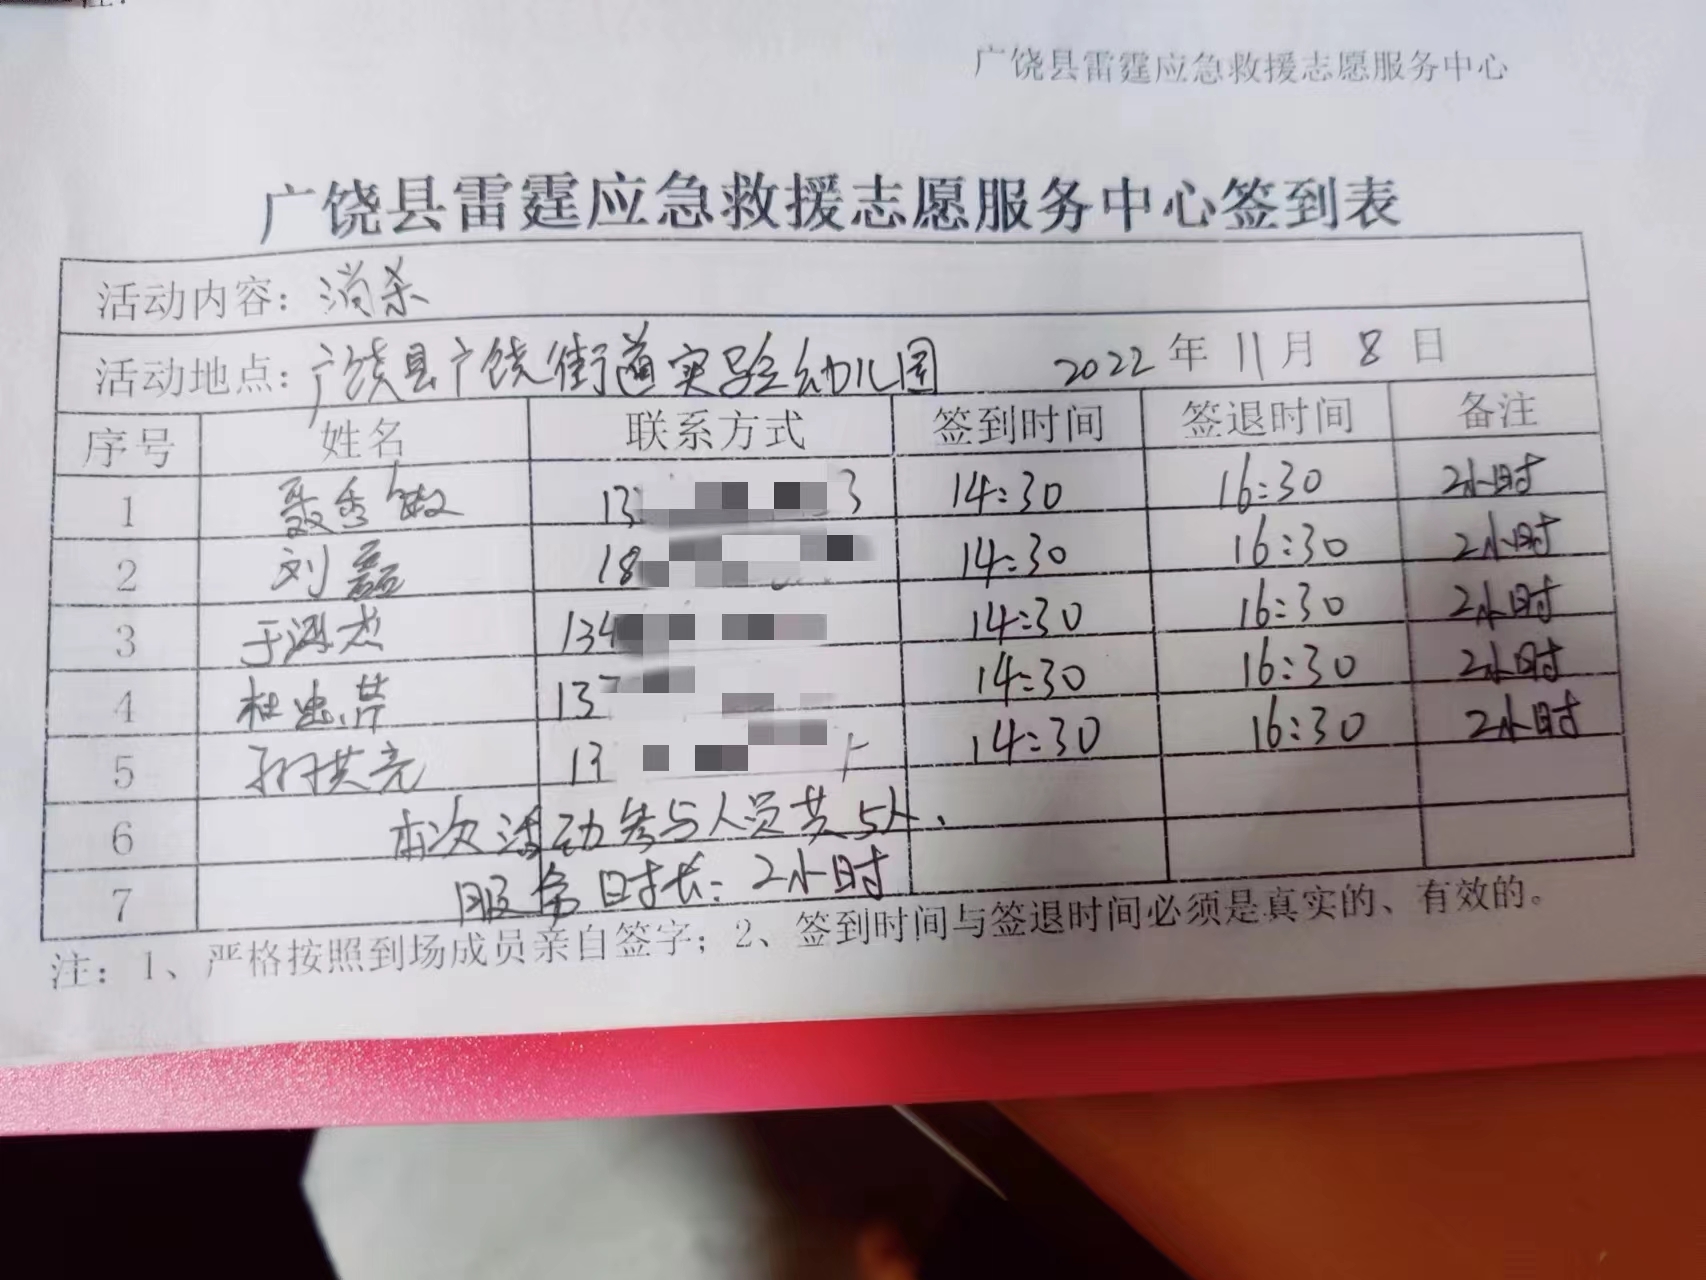 广饶县雷霆应急救援志愿服务中心
广饶县雷霆应急救援志愿服务中心签到表
活动内容：消杀
活动地点：广饶县广饶街道实验幼儿园 2022年11月8日
序号 姓名 联系方式 签到时间 签退时间 备注
1 聂秀敏 13 3 14:30 16:30 2小时
2 刘磊 18 14:30 16:30 2小时
3 于 杰 134 14:30 16:30 2小时
4 杜忠芹 137 14:30 16:30 2小时
5 孙洪亮 13 14:30 16:30 2小时
6 本次活动参与人员共5人、
7 服务时长：2小时
注：1、严格按照到场成员亲自签字；2、签到时间与签退时间必须是真实的、有效的。